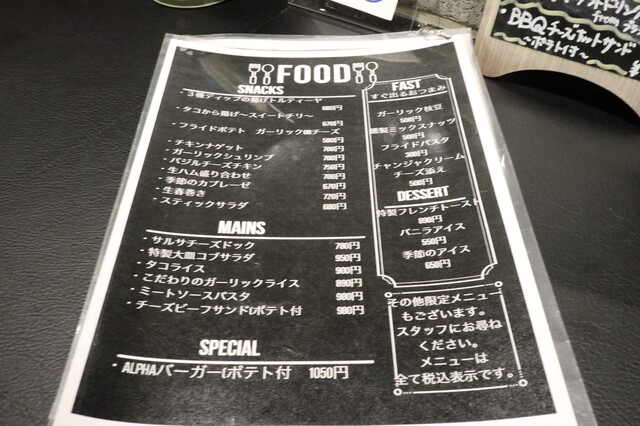 FOOD
SNACKS
・3種ディップの揚げトルティーヤ
・タコから揚げ～スイートチリ～
670円
・フライドポテト ガーリック&チーズ
・チキンナゲット
・ガーリックシュリンプ 700円
・バジルチーズチキン 750円
・生ハム盛り合わせ 700円
・季節のカプレーゼ 670円
・生春巻き 720円
・スティックサラダ
MAINS
・サルサチーズドック 780円
・特製大皿コブサラダ 950円
・タコライス 900円
・こだわりのガーリックライス 890円
・ミートソースパスタ 980円
・チーズビーフサンド(ポテト付 980円
SPECIAL
・ALPHAバーガー(ポテト付 1050円
FAST
すぐ出るおつまみ
ガーリック枝豆
500円
燻製ミックスナッツ
500円
フライドパスタ
300円
チャンジャクリーム
チーズ添え
500円
DESSERT
特製フレンチトースト
890円
バニラアイス
550円
季節のアイス
650円
その他限定メニュー
もございます。
スタッフにお尋ね
ください。
メニューは
全て税込表示です。
from
・BBQチーズホットサンド
～ポテト付～